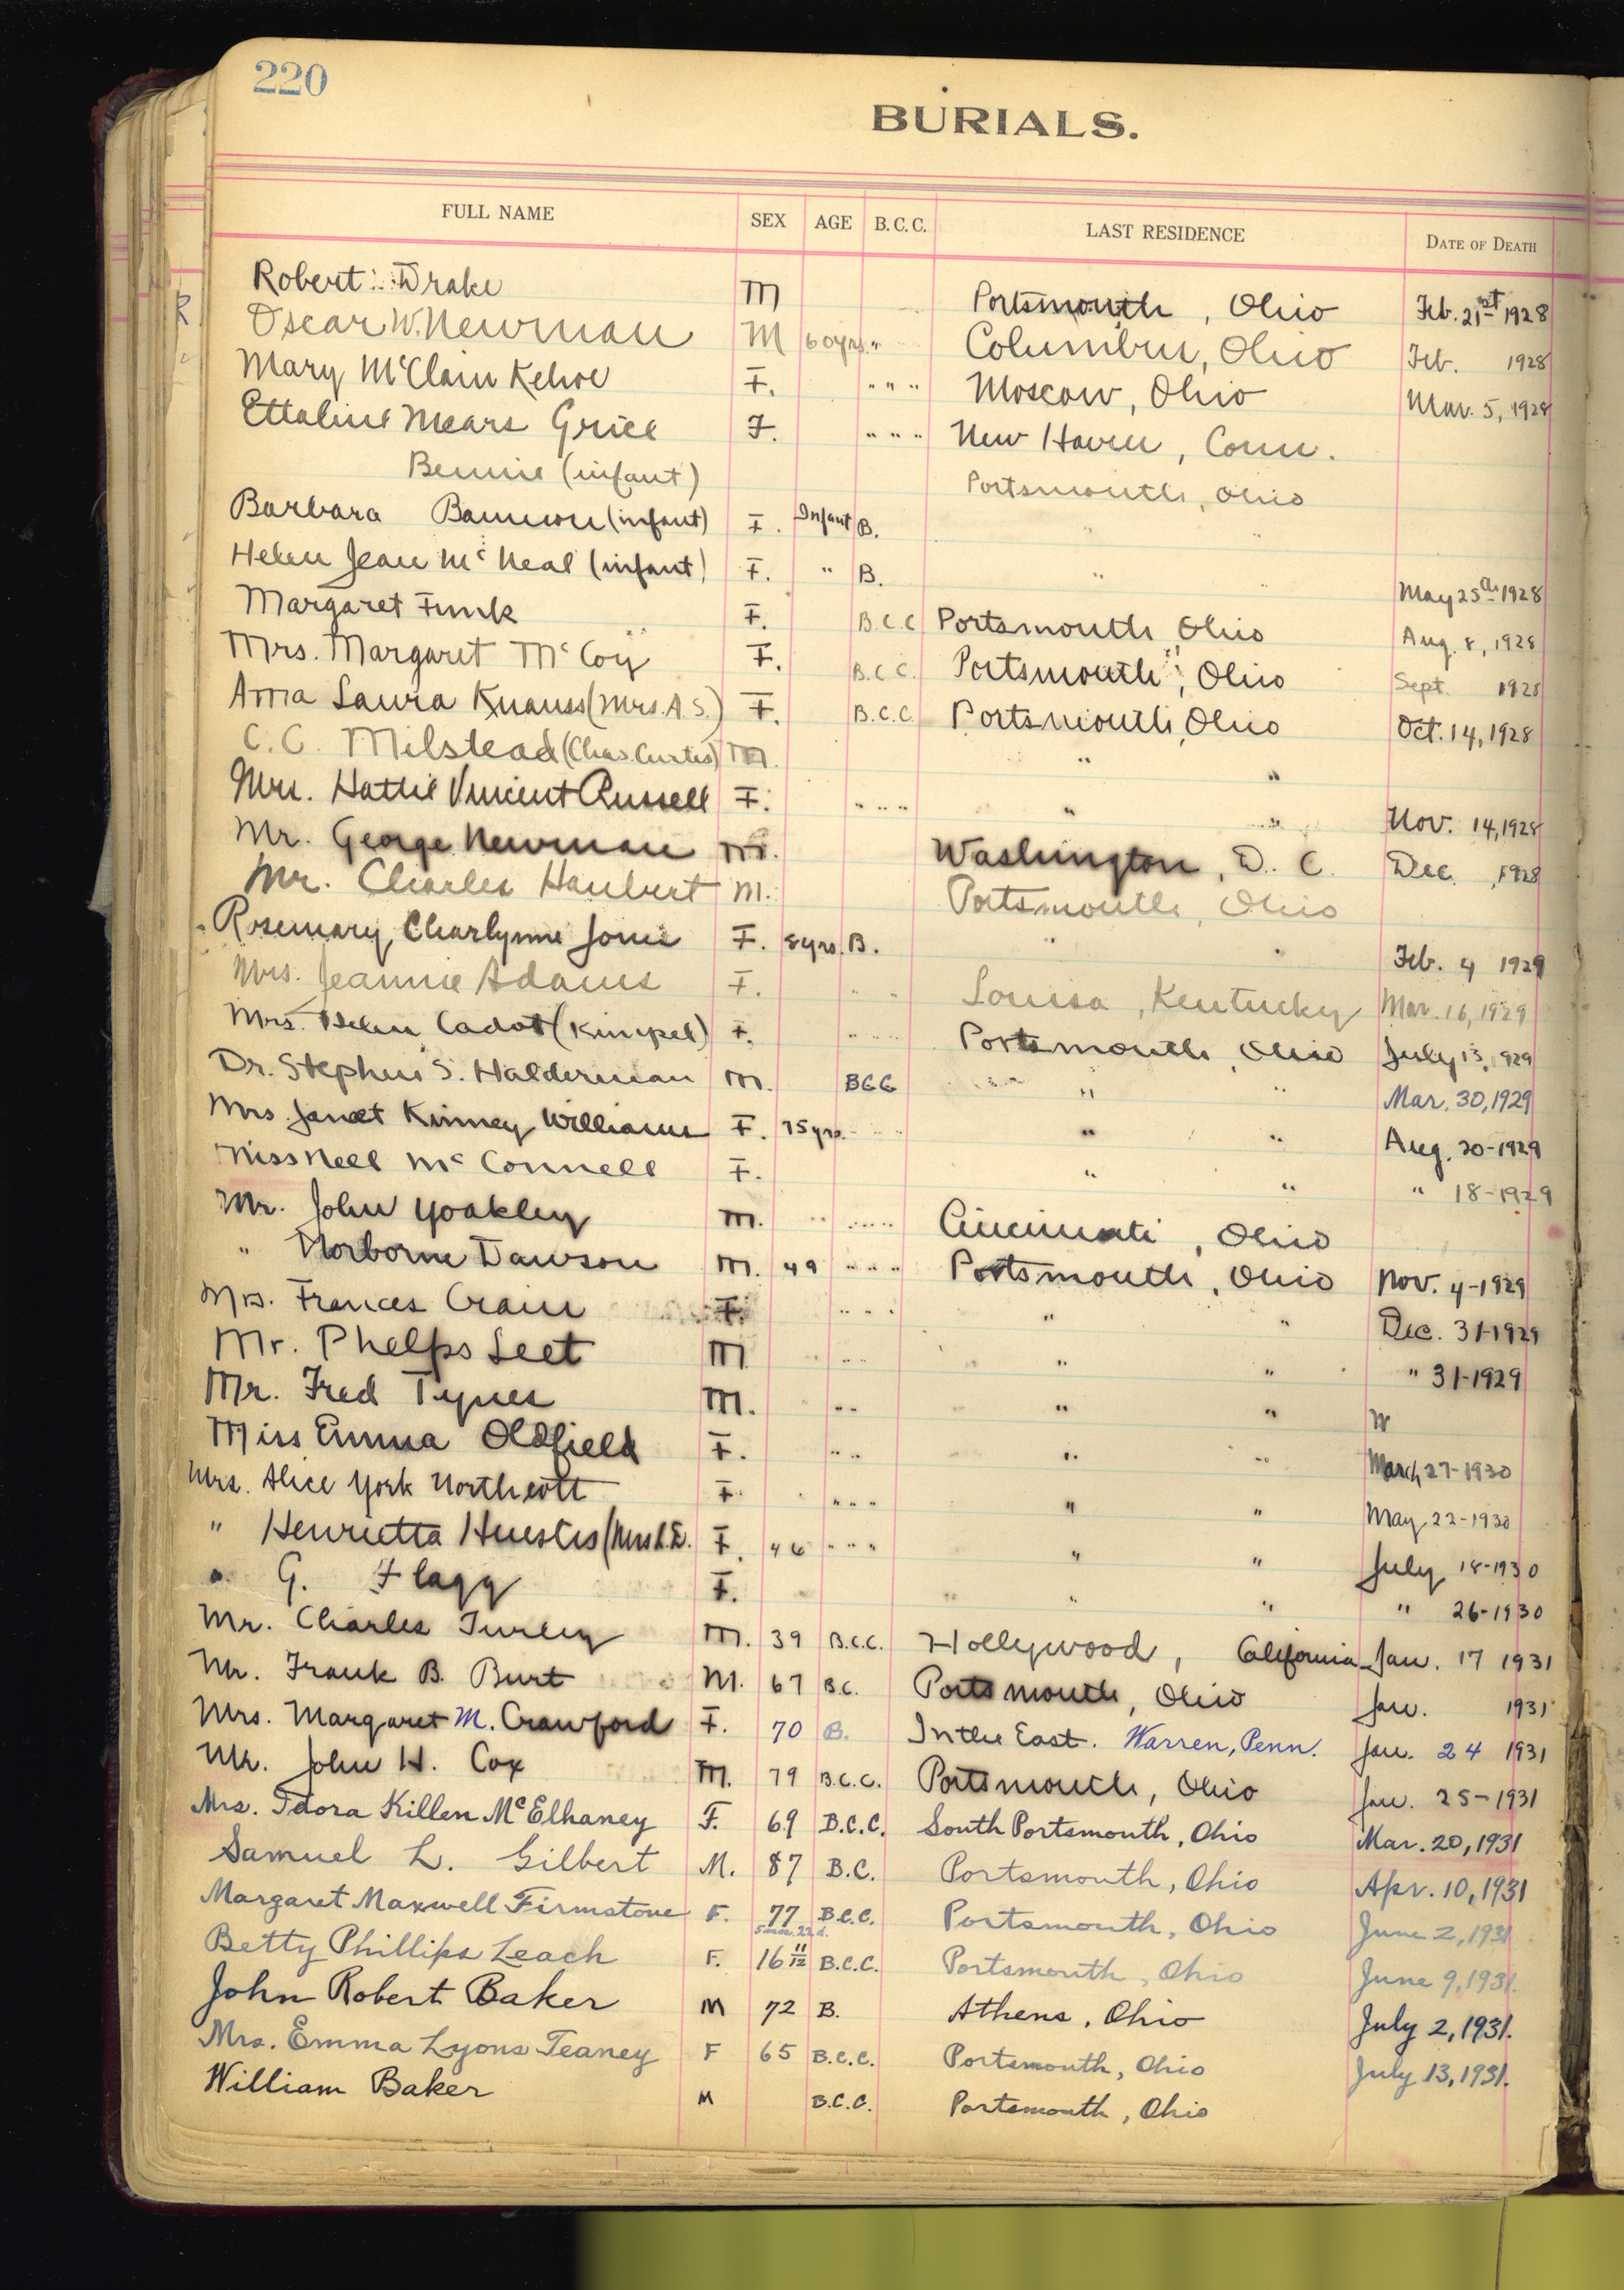 220
BURIALS.
FULL NAME SEX AGE B.C.C. LAST RESIDENCE DATE OF DEATH
Robert Drake M Portsmouth, Ohio Feb. 21st 1928
Oscar W. Newman M 60yrs " Columbus, Ohio Feb. 1928
Mary McClain Kehoe F. " " " Moscow, Ohio Mar. 5, 1928
Ettaline Mears Grice F. " " " New Haven, Conn.
Bennie (infant) Portsmouth, Ohio
Barbara Bannon (infant) F. Infant B. " "
Helen Jean McNeal (infant) F. " B. " " May 25th 1928
Margaret Funk F. B.C.C Portsmouth Ohio Aug. 8, 1928
Mrs. Margaret McCoy F. B.C.C. Portsmouth, Ohio Sept. 1928
Anna Laura Knauss (Mrs. A.S.) F. B.C.C. Portsmouth, Ohio Oct. 14, 1928
C. C. Milstead (Chas. Curtis) M. " "
Mrs. Hattie Vincent Russell F. " " " " " Nov. 14, 1928
Mr. George Newman M. Washington, D. C. Dec. , 1928
Mr. Charles Haubert M. Portsmouth, Ohio
Rosemary Charlynne Jones F. 8yrs. B. " " Feb. 4 1929
Mrs. Jeannie Adams F. " " Louisa, Kentucky Mar. 16, 1929
Mrs. Helen Cadot (Kimpel) F. " " " Portsmouth, Ohio July 13, 1929
Dr. Stephen S. Halderman M. BCC " " Mar. 30, 1929
Mrs Janet Kinney Williams F. 75yrs. " " " " Aug. 20-1929
Miss Nell McConnell F. " " " 18-1929
Mr. John Yoakley M. " " " Cincinnati, Ohio
" Norborne Dawson M. 49 " " " Portsmouth, Ohio Nov. 4-1929
Mrs. Frances Crain F. " " " " " Dec. 31-1929
Mr. Phelps Leet M " " " " " 31-1929
Mr. Fred Tynes M. " " " "
Miss Emma Oldfield F. " " " " March 27-1930
Mrs. Alice York Northcott F. " " " " " May 22-1930
" Henrietta Huestis (Mrs L.E. F. 46 " " " " " July 18-1930
" G. Flagg F. " " " 26-1930
Mr. Charles Turley M. 39 B.C.C. Hollywood, California Jan. 17 1931
Mr. Frank B. Burt M. 67 B.C. Portsmouth, Ohio Jan. 1931
Mrs. Margaret M. Crawford F. 70 B. In the East. Warren, Penn. Jan. 24 1931
Mr. John H. Cox M. 79 B.C.C. Portsmouth, Ohio Jan. 25-1931
Mrs. Idora Killen McElhaney F. 69 B.C.C. South Portsmouth, Ohio Mar. 20, 1931
Samuel L. Gilbert M. 87 B.C. Portsmouth, Ohio Apr. 10, 1931
Margaret Maxwell Firmstone F. 77 B.C.C. Portsmouth, Ohio June 2, 1931
5 mos. 22 d.
Betty Phillips Leach F. 16 11/12 B.C.C. Portsmouth, Ohio June 9, 1931.
John Robert Baker M 72 B. Athens, Ohio July 2, 1931.
Mrs. Emma Lyons Teaney F 65 B.C.C. Portsmouth, Ohio July 13, 1931.
William Baker M B.C.C. Portsmouth, Ohio